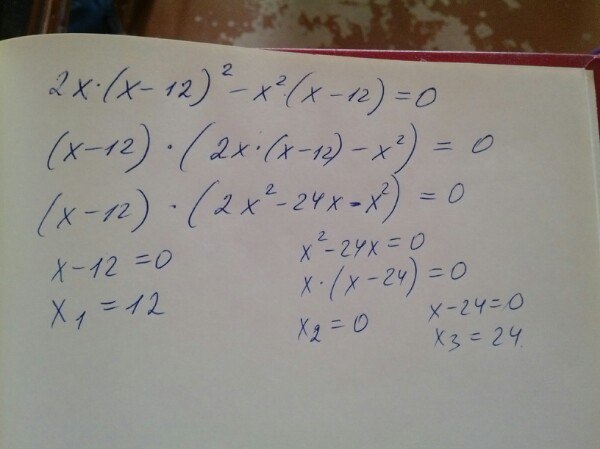 2x·(x-12)² - x²·(x-12) = 0
(x-12) · (2x·(x-12) - x²) = 0
(x-12) · (2x² - 24x - x²) = 0
x-12 = 0
x₁ = 12
x² - 24x = 0
x·(x-24) = 0
x₂ = 0
x-24 = 0
x₃ = 24